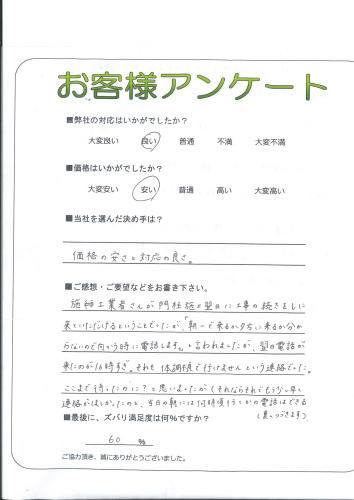 お客様アンケート
■弊社の対応はいかがでしたか？
大変良い 良い 普通 不満 大変不満
■価格はいかがでしたか？
大変安い 安い 普通 高い 大変高い
■当社を選んだ決め手は？
価格の安さと対応の良さ。
■ご感想・ご要望などをお書き下さい。
施錠工業者さんが門柱施工翌日に工事の続きをしに
来ていただけるということでしたが、「朝一で来るか夕方に来るか分か
らないので向かう時に電話します。」と言われましたが、翌日電話が
来たのが16時すぎ。それも体調不良で行けませんという連絡でした。
ここまで待ったのに？と思いましたが（それならそれでもう少し早く
連絡がほしかったのと、当日の朝には何時頃行くかの電話はできる
（裏へつづきます）
■最後に、ズバリ満足度は何％ですか？
60 %
ご協力頂き、誠にありがとうございました。